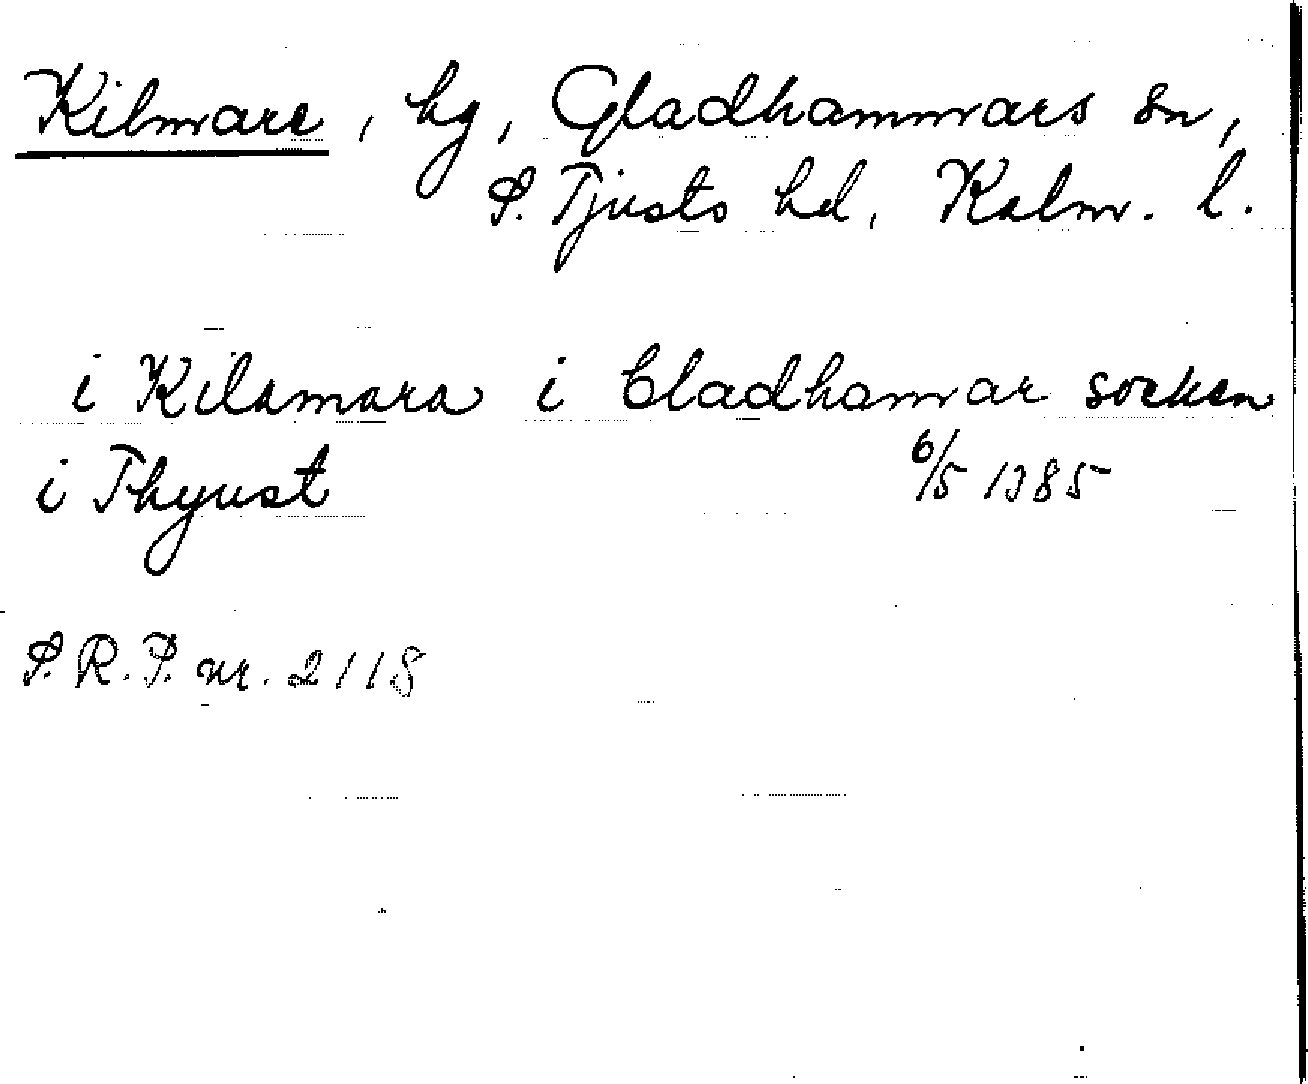 Kilmare, hg, Gladhammars sn,
S. Tjusts hd, Kalm. l.
i Kilamara i Cladhamar socken
i Thyust 6/5 1385
S.R.P. nr. 2118